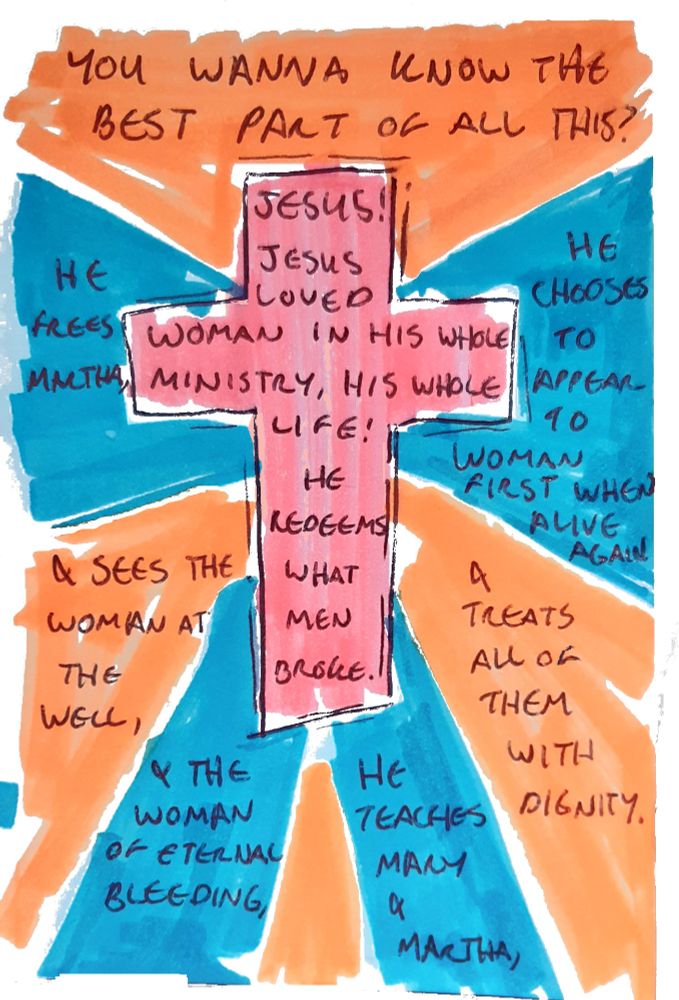 YOU WANNA KNOW THE
BEST PART OF ALL THIS?
JESUS!
JESUS
LOVED
WOMAN IN HIS WHOLE
MINISTRY, HIS WHOLE
LIFE!
HE
REDEEMS
WHAT
MEN
BROKE.
HE
FREES
MARTHA,
& SEES THE
WOMAN AT
THE
WELL,
& THE
WOMAN
OF ETERNAL
BLEEDING,
HE
TEACHES
MARY
&
MARTHA,
HE
CHOOSES
TO
APPEAR
TO
WOMAN
FIRST WHEN
ALIVE
AGAIN
&
TREATS
ALL OF
THEM
WITH
DIGNITY.